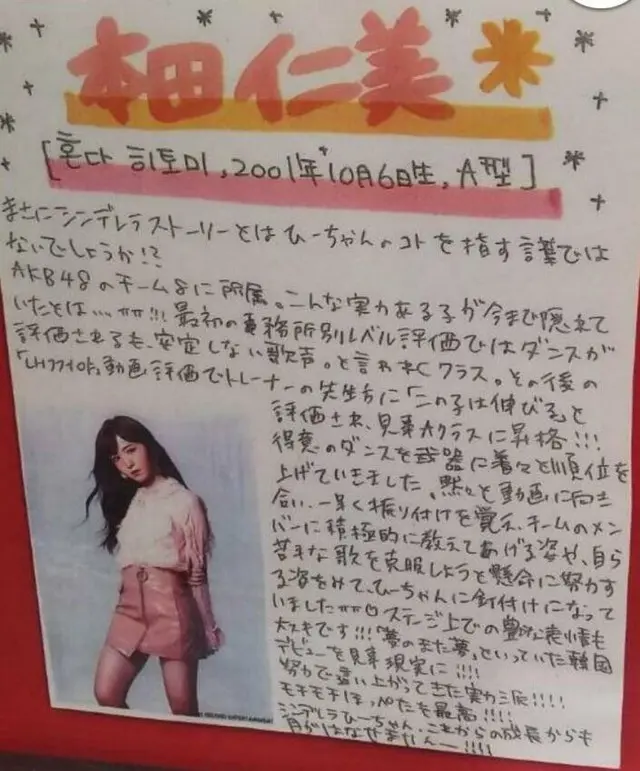 本田仁美
[혼다 히토미, 2001年10月6日生, A型]
まさにシンデレラストーリーとはひーちゃんのコトを指す言葉では
ないでしょうか!?
AKB48のチーム8に所属。こんな実力ある子が今まで隠れて
いたとは… !!! 最初の事務所別レベル評価ではダンスが
評価されるも、安定しない歌声。と言われCクラス。その後の
「내꺼야」動画評価でトレーナーの先生方に「この子は伸びる」と
評価され、見事Aクラスに昇格!!!
得意のダンスを武器に着々と順位を
上げていきました。黙々と動画に向き
合い、一早く振り付けを覚え、チームのメン
バーに積極的に教えてあげる姿や、自ら
苦手な歌を克服しようと懸命に努力す
る姿をみて、ひーちゃんに釘付けになって
いました ステージ上での豊かな表情も
大スキです!!! "夢のまた夢"といっていた韓国
デビューを見事現実に!!!!
努力で這い上がってきた実力派!!!!
モチモチほっぺたも最高!!!!
シンデレラひーちゃん、これからの成長からも
目がはなせませんー!!!!